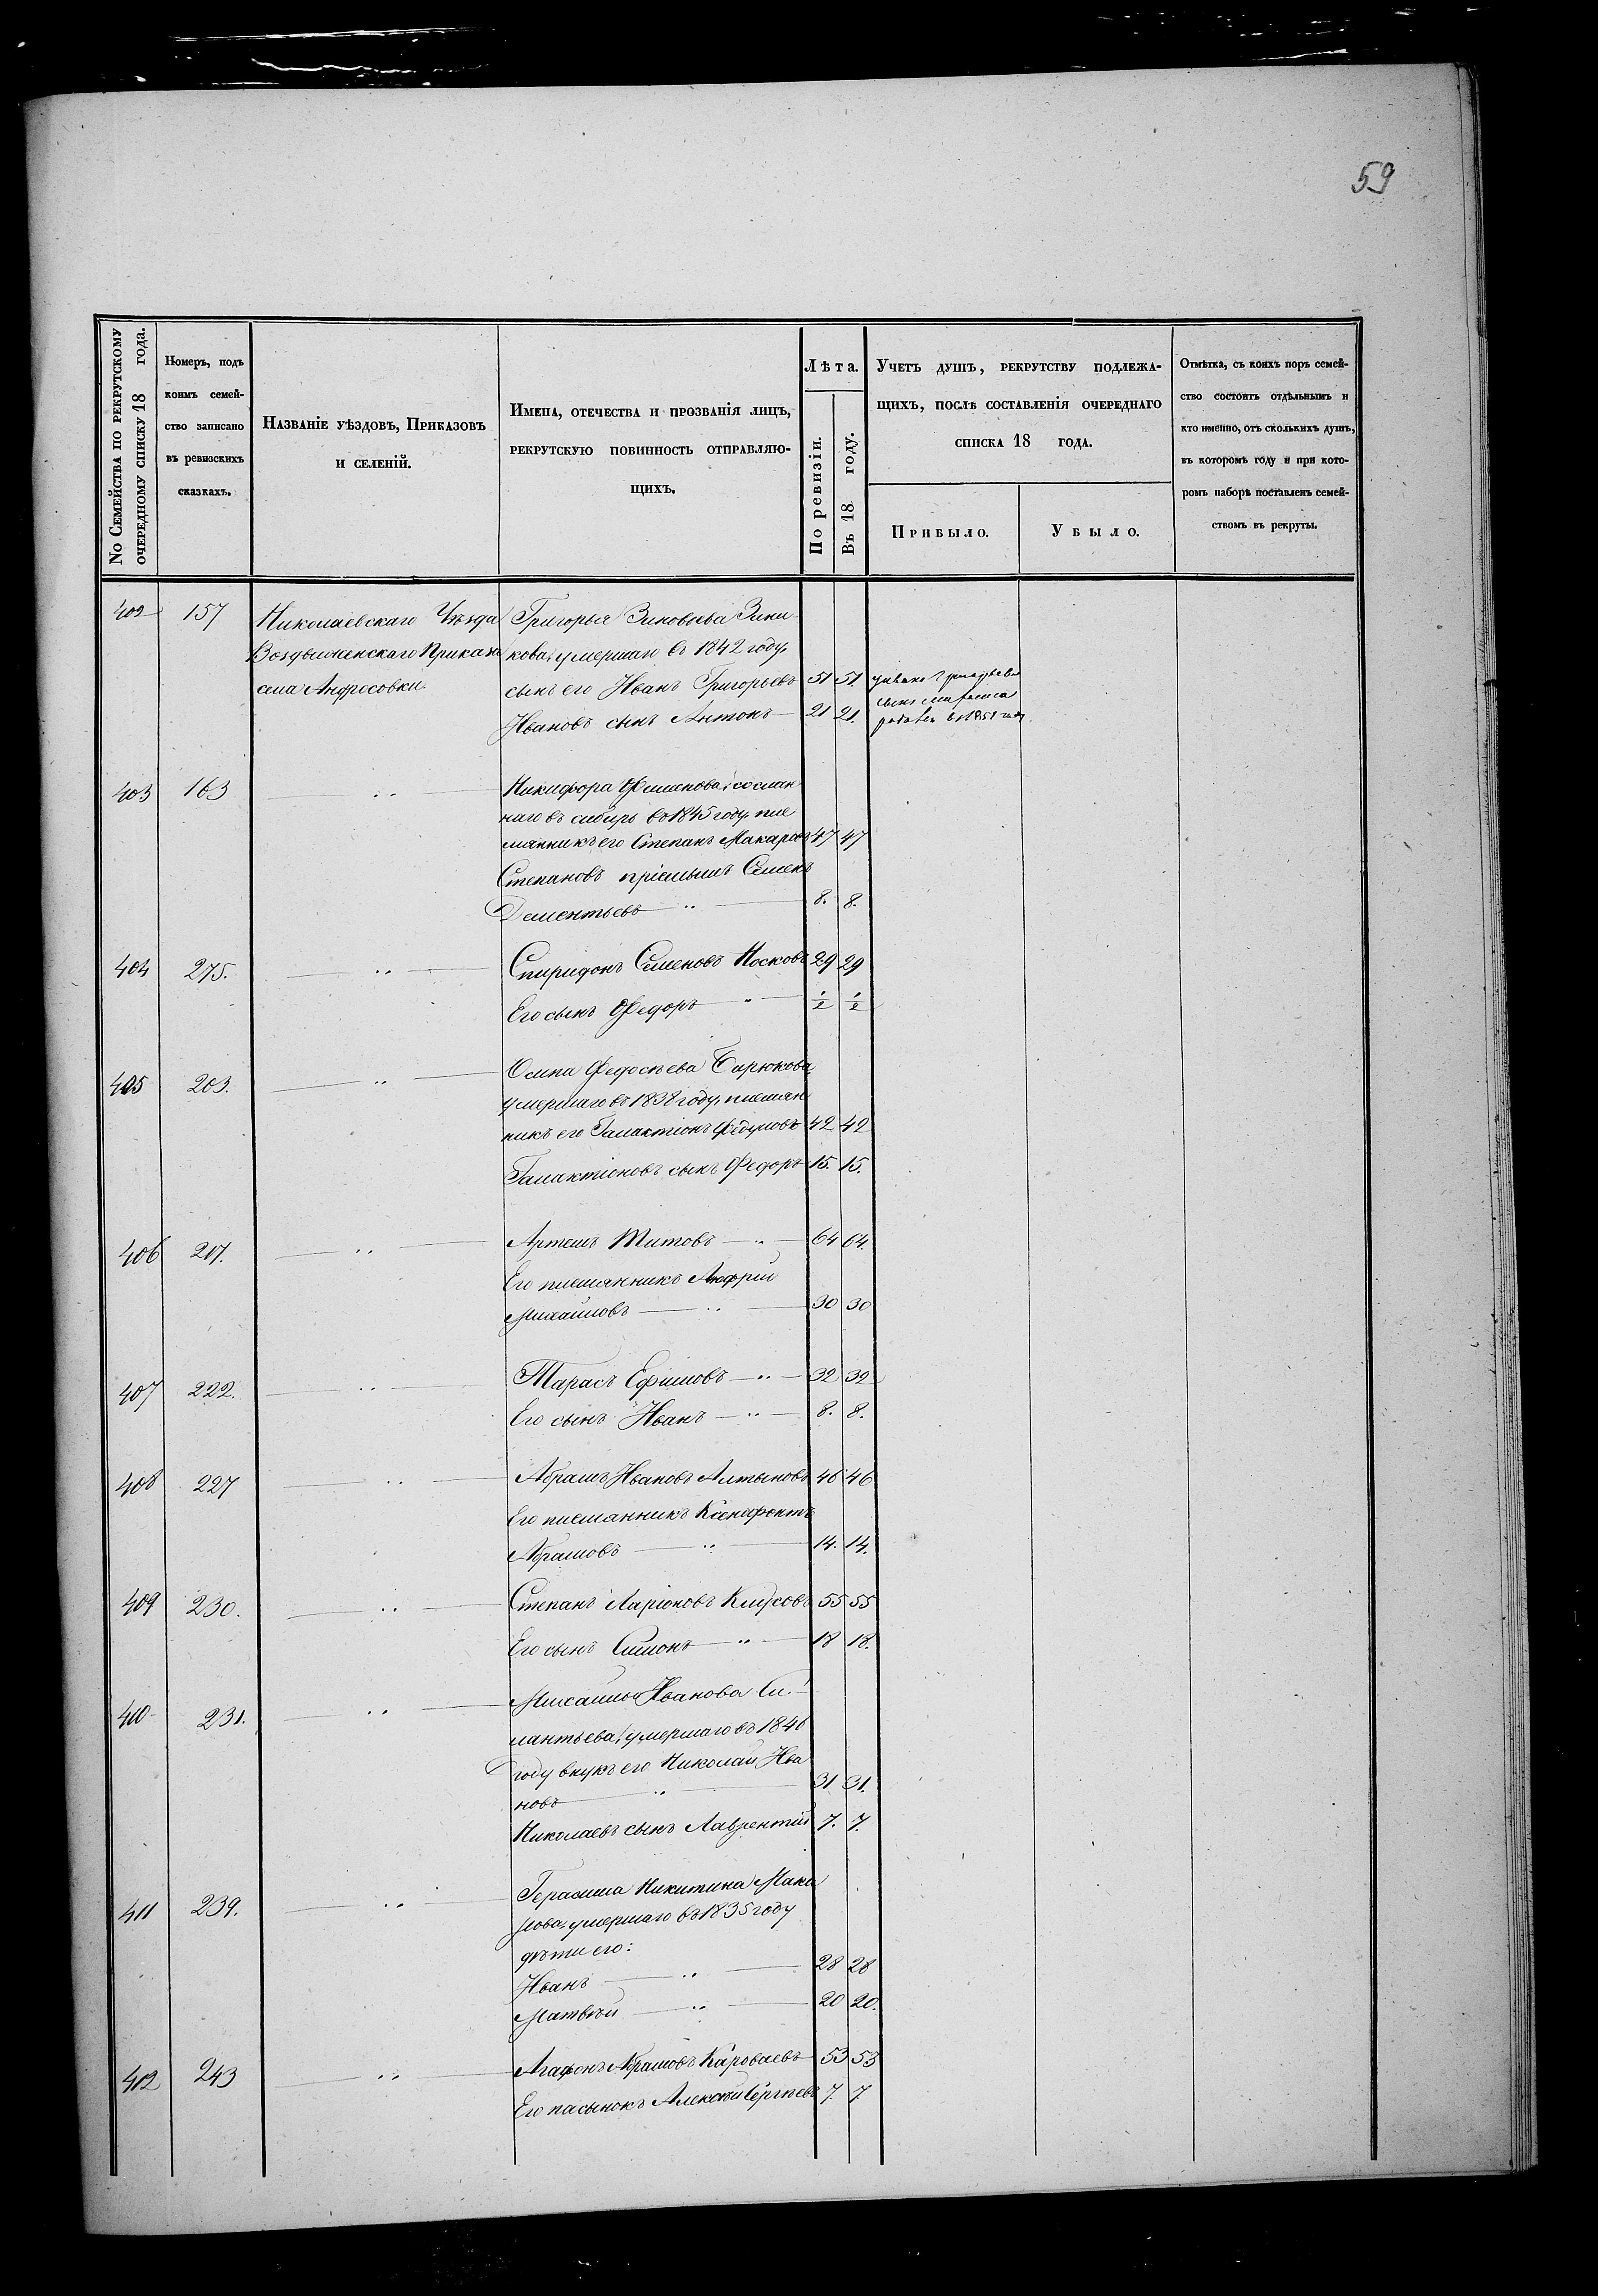 59
No Семейства по рекрутскому
очередному списку 18 года.
Номеръ, подъ
коимъ семей-
ство записано
въ ревизскихъ
сказкахъ.
Названіе уѣздовъ, Приказовъ
и селеній.
Имена, отечества и прозванія лицъ,
рекрутскую повинность отправляю-
щихъ.
Лѣта.
По ревизіи.
Въ 18 году.
Учетъ душъ, рекрутству подлежа-
щихъ, послѣ составленія очереднаго
списка 18 года.
Прибыло.
Убыло.
Отмѣтка, съ коихъ поръ семей-
ство состоитъ отдѣльнымъ и
кто именно, отъ сколькихъ душъ,
въ которомъ году и при кото-
ромъ наборѣ поставленъ семей-
ствомъ въ рекруты.
402 157 Николаевскаго Уѣзда Григорья Зиновьева Зини-
Воздвиженскаго Приказа кова, умершаго въ 1842 году,
села Андросовки. сынъ его Иванъ Григорьевъ 51 51.
Ивановъ сынъ Антонъ 21 21.
сынъ
въ 1851 году
403 163 Никифора Филипова, сослан
наго въ сибирь въ 1845 году, пле
мянникъ его Степанъ Макаровъ 47 47
Степановъ пріемышъ Семенъ
Дементьевъ 8. 8.
404 275. Спиридонъ Семеновъ Носковъ 29 29
Его сынъ Федоръ ½ ½
405 203. Осипа Федосѣева Бирюкова,
умершаго въ 1838 году, племян
никъ его Галактіонъ 42 42
Галактіоновъ сынъ Федоръ 15. 15.
406 217. Артемъ Титовъ 64 64.
Его племянникъ
Михайловъ 30 30
407 222. Тарасъ Ефимовъ 32 32
Его сынъ Иванъ 8. 8.
408 227 Абрамъ Ивановъ Алтыновъ 46 46
Его племянникъ Ксенофонтъ
Абрамовъ 14. 14.
409 230. Степанъ Ларіоновъ 55 55
Его сынъ Симонъ 18 18.
410 231. Михайлы Иванова Си-
лантьева, умершаго въ 1846
году внукъ его Николай Ива
новъ 31 31.
Николаевъ сынъ Лаврентій 7. 7.
411 239. Герасима Никитина
умершаго въ 1835 году
дѣти его:
Иванъ 28 28
Матвѣй 20 20.
402 243 Агафонъ Абрамовъ Короваевъ 53 53
Его пасынокъ Алексѣй Сергѣевъ 7. 7